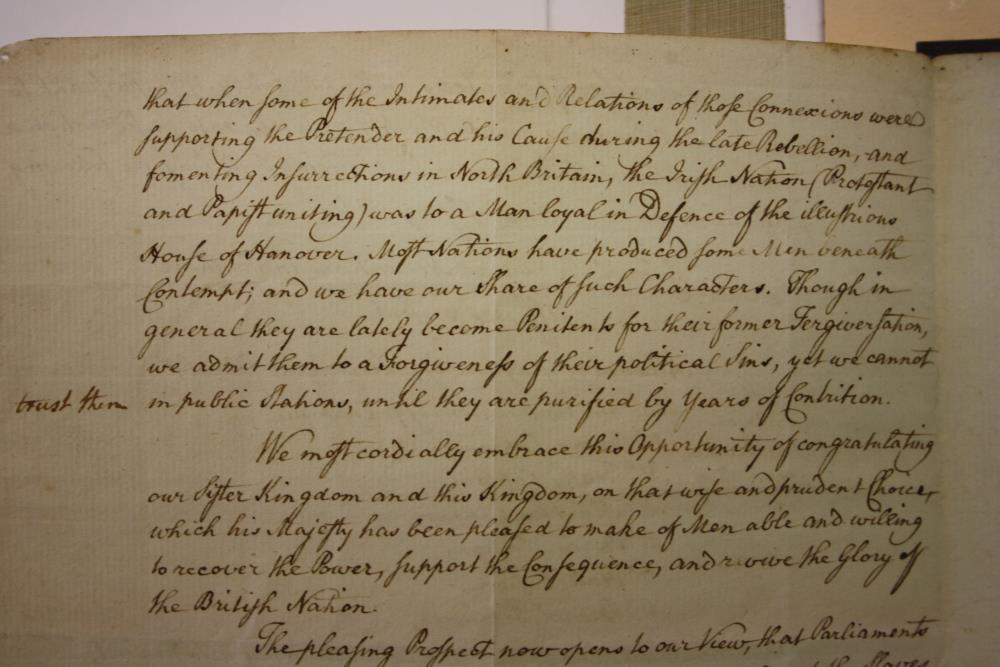 that when some of the Intimates and Relations of those Connexions were
supporting the Pretender and his Cause during the late Rebellion, and
fomenting Insurrections in North Britain, the Irish Nation (Protestant
and Papist uniting) was to a Man loyal in Defence of the illustrious
House of Hanover. Most Nations have produced some Men beneath
Contempt; and we have our Share of such Characters. Though in
general they are lately become Penitents for their former Tergiversation,
we admit them to a Forgiveness of their political Sins, yet we cannot
trust them in public Stations, until they are purified by Years of Contrition.
We most cordially embrace this Opportunity of congratulating
our Sister Kingdom and this Kingdom, on that wise and prudent Choice,
which his Majesty has been pleased to make of Men able and willing
to recover the Power, support the Consequence, and revive the Glory of
the British Nation.
The pleasing Prospect now opens to our View, that Parliaments